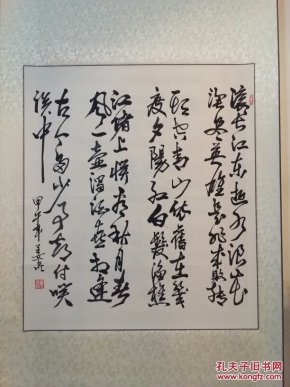 滚滚长江东逝水浪花
淘尽英雄是非成敗转
头空青山依舊在幾
度夕陽红白髮漁樵
江渚上惯看秋月春
風一壶濁酒喜相逢
古今多少事都付笑
谈中
甲午年
孔夫子旧书网